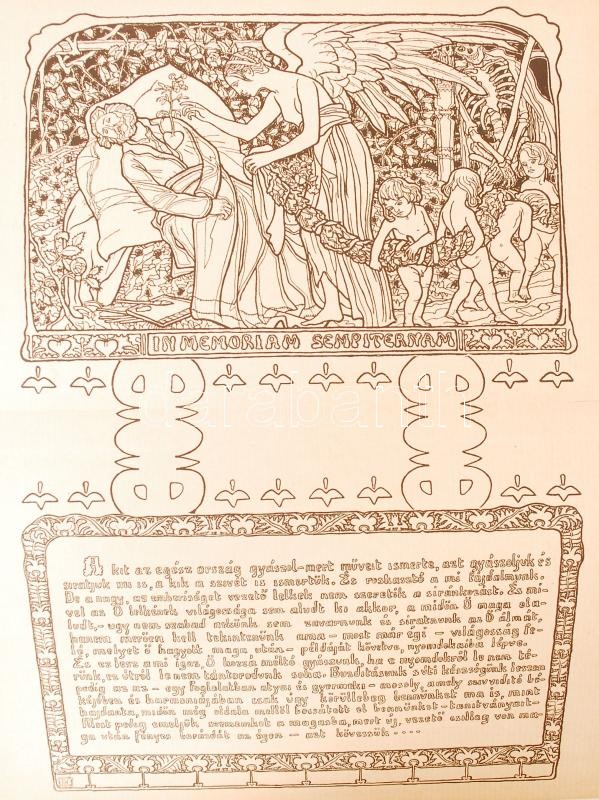 IN MEMORIAM SEMPITERNAM
darabanth
A kit az egész ország gyászol-mert műveit ismerte, azt gyászoljuk és
siratjuk mi is, a kik a szívét is ismertük. És roskasztó a mi fájdalmunk.
De a nagy, az emberiséget vezető lelkek nem szeretik a siránkozást. És mi-
vel az Ő lelkének világossága sem aludt ki akkor, a midőn Ő maga ela-
ludt,- úgy nem szabad nékünk sem zavarnunk és siratnunk az Ő álmát,
hanem merően kell tekintenünk ama - most már égi - világosság fe-
lé, melyet Ő hagyott maga után - példáját követve, nyomdokaiba lépve.
És ez lesz a mi igaz, Ő hozzá méltó gyászunk, ha e nyomdokról le nem té-
rünk, ez útról le nem tántorodunk soha. Buzdításunk s úti készségünk leszen
pedig az az - egy foglalatban atyai és gyermeki - mosoly, amely szívvidító bé-
kéjében és harmoniájában csak úgy körüllebeg bennünket ma is, mint
hajdanta, midőn még oldala mellől bocsátott el bennünket - tanítványait.-
Mint pedig emeljük szemünket a magasba, mert új, vezető csillag von ma-
ga után fényes barázdát az égen - azt kövessük ....